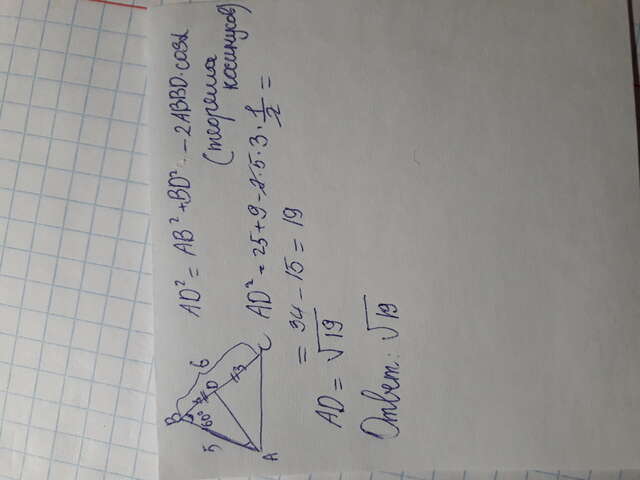 B
5
60°
D
6
3
A
C
AD² = AB² + BD² - 2ABBD·cosα
(теорема
косинусов)
AD² = 25 + 9 - 2·5·3·1/2 =
= 34 - 15 = 19
AD = √19
Ответ: √19